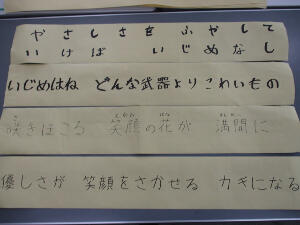 やさしさをふやして
いけば いじめなし
いじめはね どんな武器よりこわいもの
咲きほこる 笑顔の花が 満開に
優しさが 笑顔をさかせる カギになる